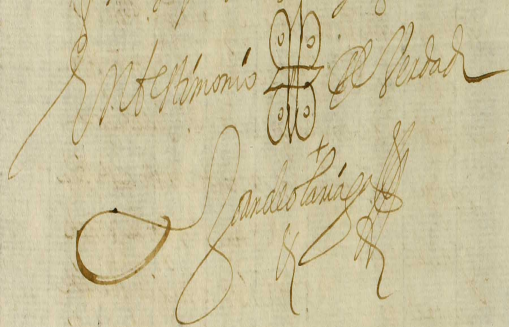 En testimonio de Verdad
Joan de olariaga